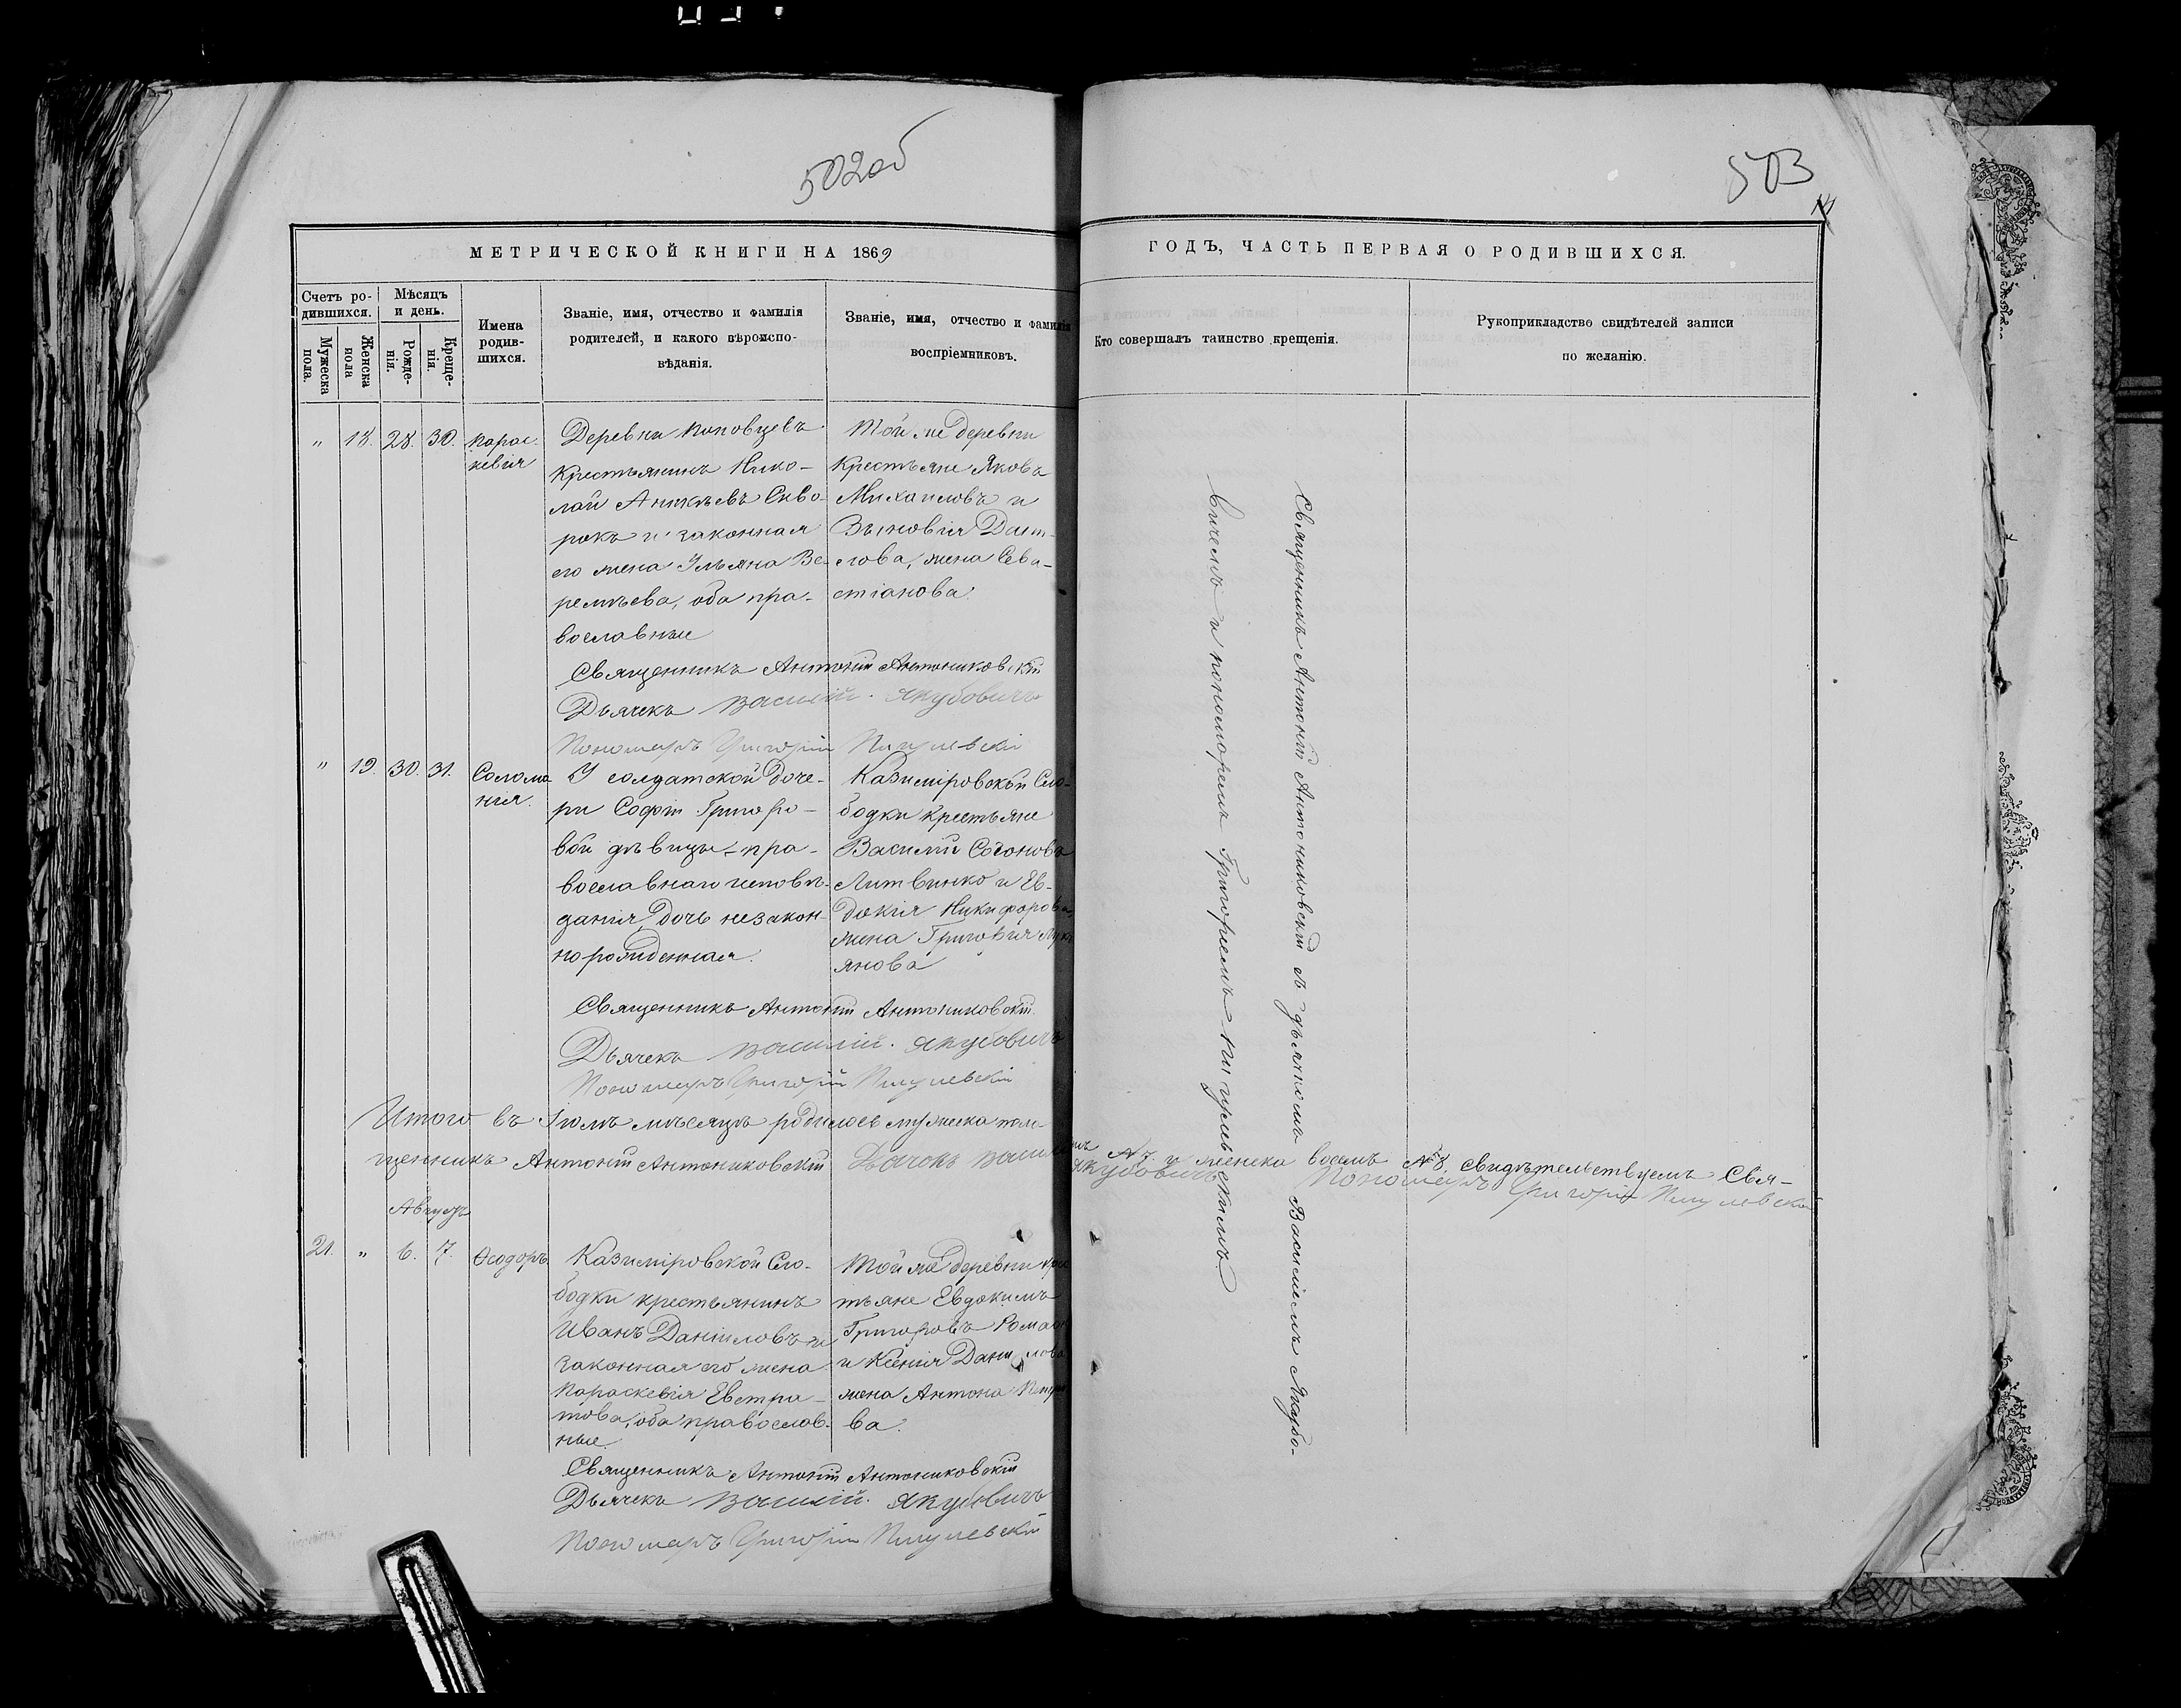 502об
503
МЕТРИЧЕСКОЙ КНИГИ НА 1869
ГОДЪ, ЧАСТЬ ПЕРВАЯ О РОДИВШИХСЯ.
Счетъ ро-
дившихся.
Мѣсяцъ
и день.
Мужеска
пола.
Женска
пола
Рожде-
нія.
Креще-
нія.
Имена
родив-
шихся.
Званіе, имя, отчество и фамилія
родителей, и какого вѣроиспо-
вѣданія.
Званіе, имя, отчество и фамилія
воспріемниковъ.
Кто совершалъ таинство крещенія.
Рукоприкладство свидѣтелей записи
по желанію.
" 18. 28. 30.
Парас-
кевія
Деревни Поповцевъ
Крестьянинъ Нико-
лай Аникѣевъ Скво-
рокъ и законная
его жена Ульяна Ве-
ремѣева, оба пра-
вославные
Той же деревни
Крестьяне Яковъ
Михаиловъ и
Зѣновія
жена Сева-
стіанова.
Священникъ Антоній Антониковскій
Дьячекъ Василій Якубовичъ
Пономарь Григорій Пигулевскій
" 19. 30. 31.
Солома
нія.
У солдатской доче-
ри Софіи Григорь-
вой дѣвицы пра-
вославнаго исповѣ-
данія дочь незакон-
норожденная.
Казиміровской Сло-
бодки крестьяне
Василій Софоновъ
Литвинко и Ев-
докія Никифорова,
жена Григорія Лукъ
янова
Священникъ Антоній Антониковскій.
Дьячекъ Василій Якубовичъ
Пономарь Григорій Пигулевскій
Итого въ Іюлѣ мѣсяцѣ родилось мужеска пола
и женска восемь № 8. свидѣтельствуемъ Свя-
щенникъ Антоній Антониковскій Дьячокъ Василій Якубовичъ Пономарь Григорій Пигулевскій
Августъ
21. " 6. 7.
Ѳеодоръ
Казиміровской Сло-
бодки крестьянинъ
Иванъ Даніиловъ и
законная его жена
Параскевія Евстра-
това, оба православ-
ные.
Той же деревни крес
тьяне Евдокимъ
Григоровъ Роман
и Ксенія Данилова
жена Антона Петро
ва.
Священникъ Антоній Антониковскій
Дьячекъ Василій Якубовичъ
Пономарь Григорій Пигулевскій
Священникъ Антоній Антониковскій съ дьячкомъ Василіемъ Якубо-
вичемъ и пономоремъ Григоріемъ Пигулевскимъ.